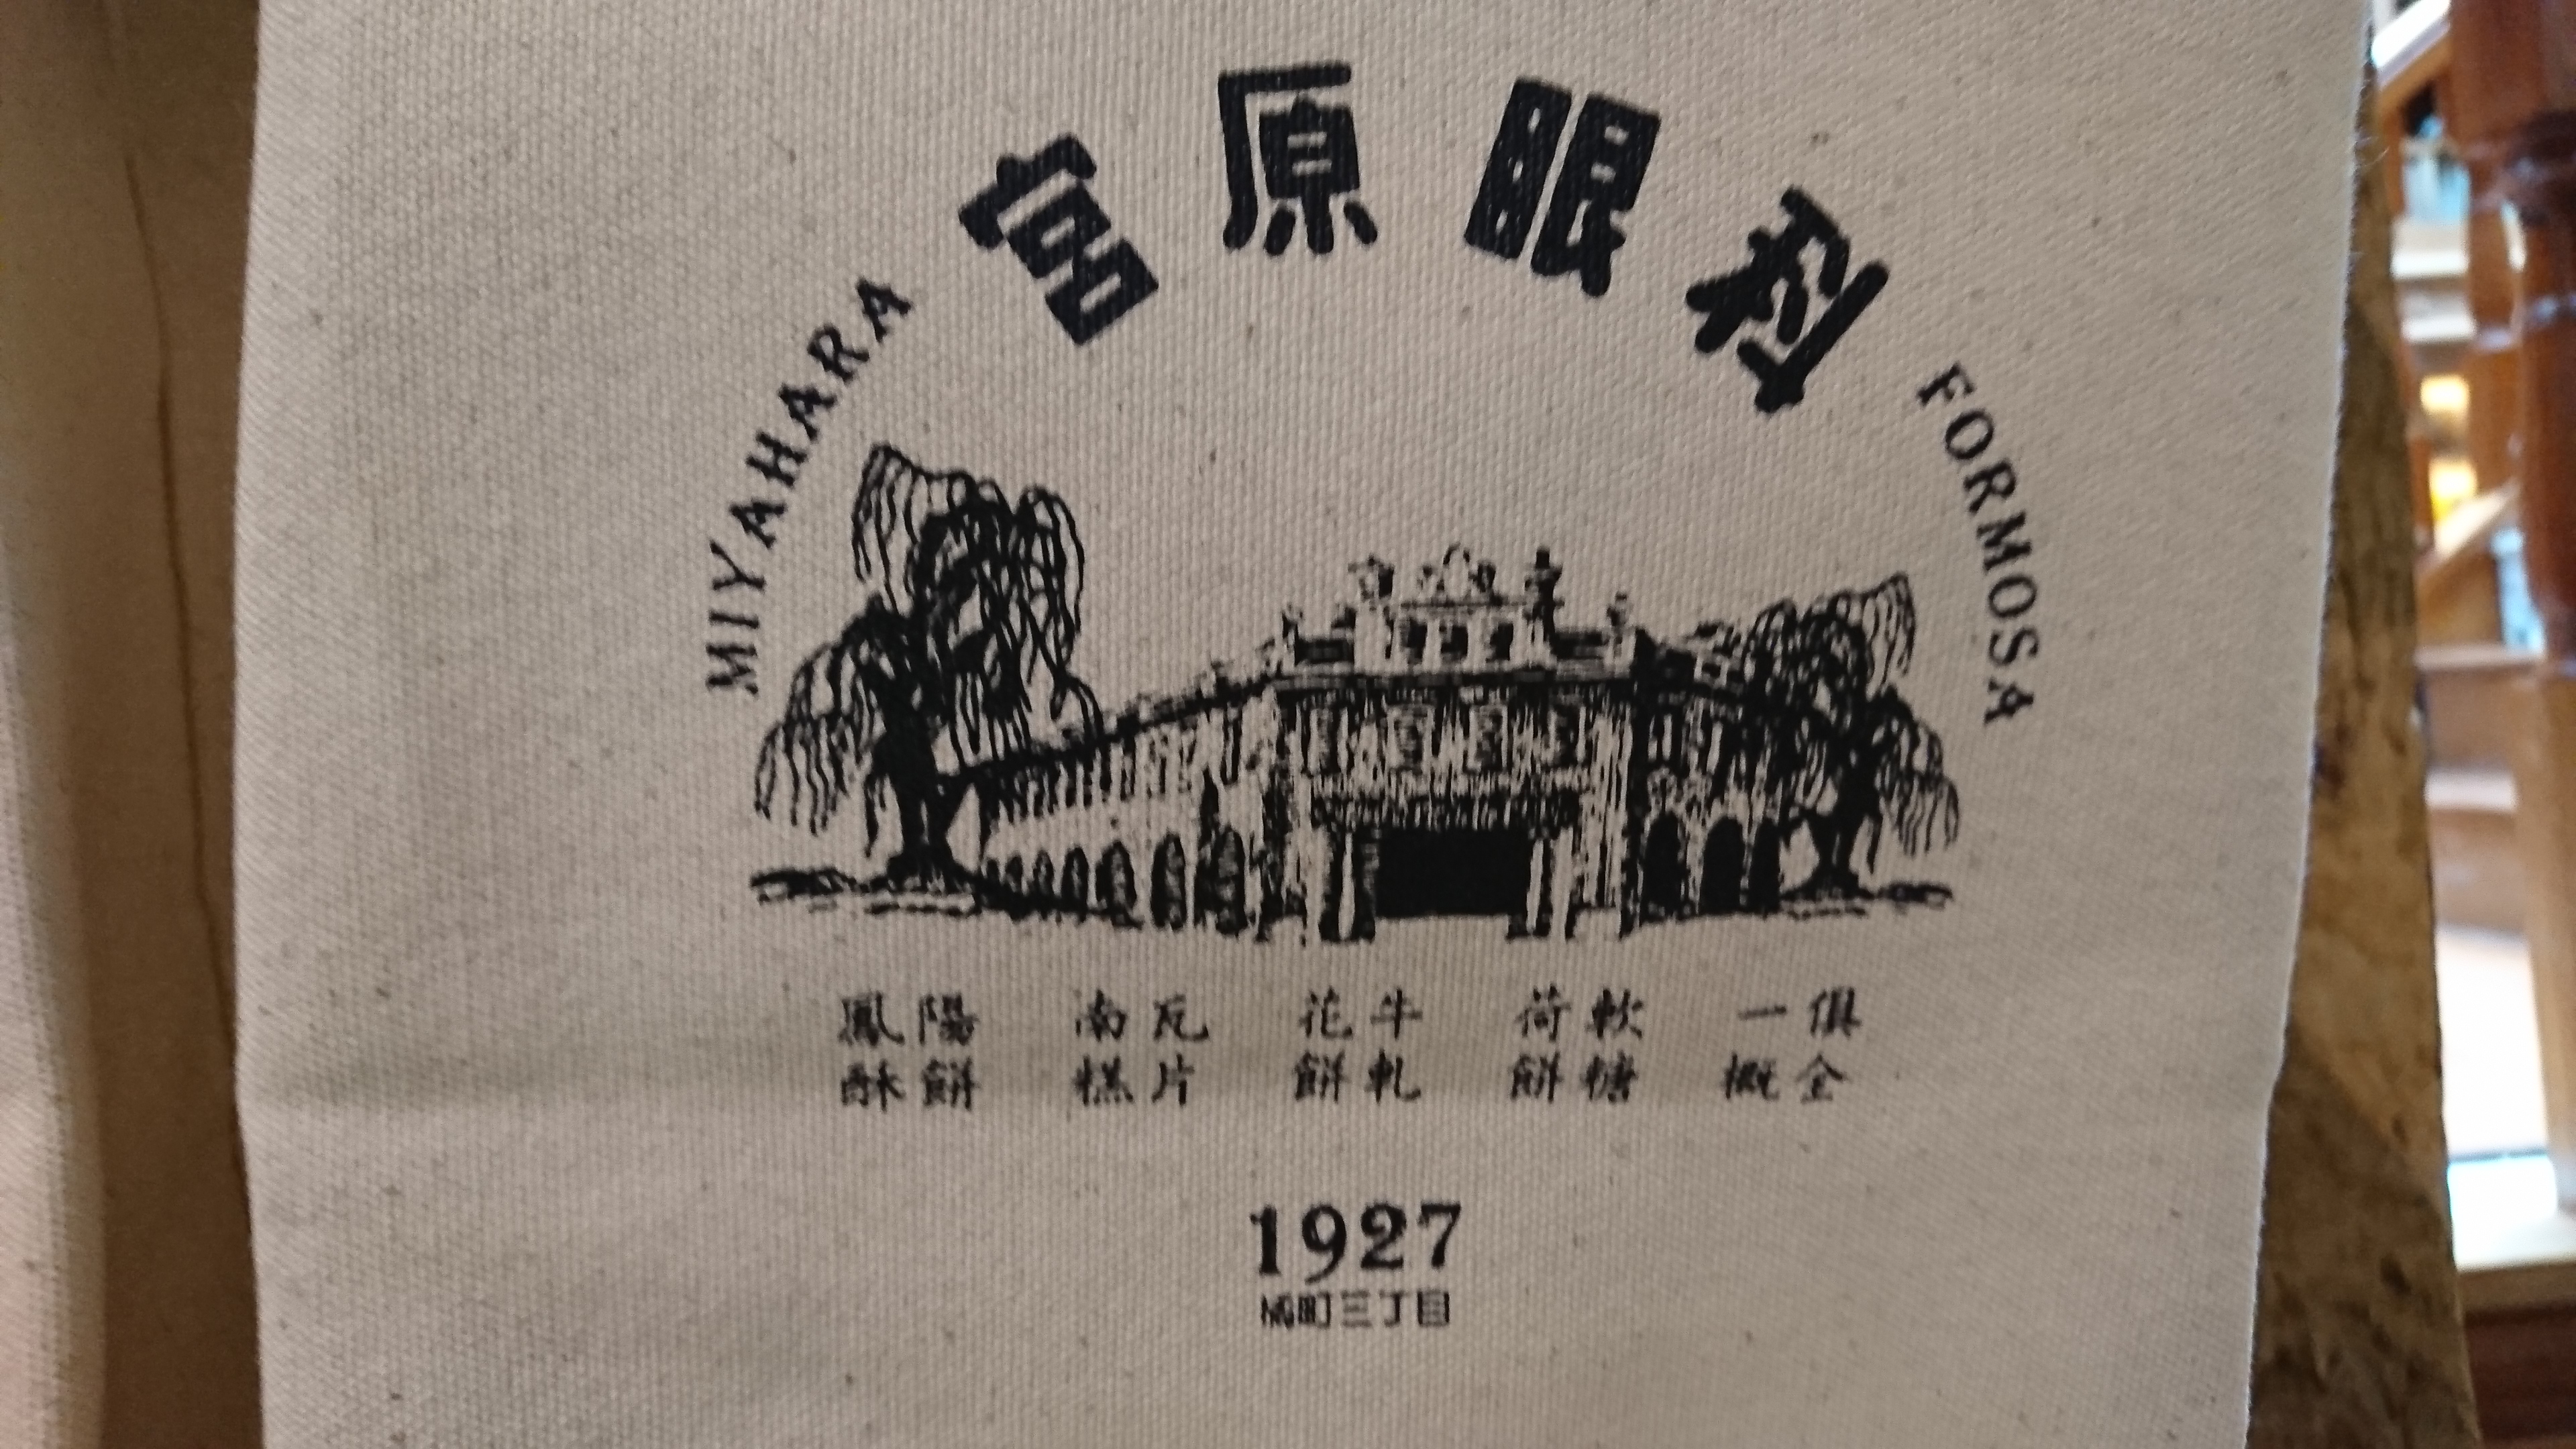 宮原眼科
MIYAHARA
FORMOSA
鳳陽 南瓦 花牛 荷軟 一俱
酥餅 糕片 餅軋 餅糖 概全
1927
橘町三丁目